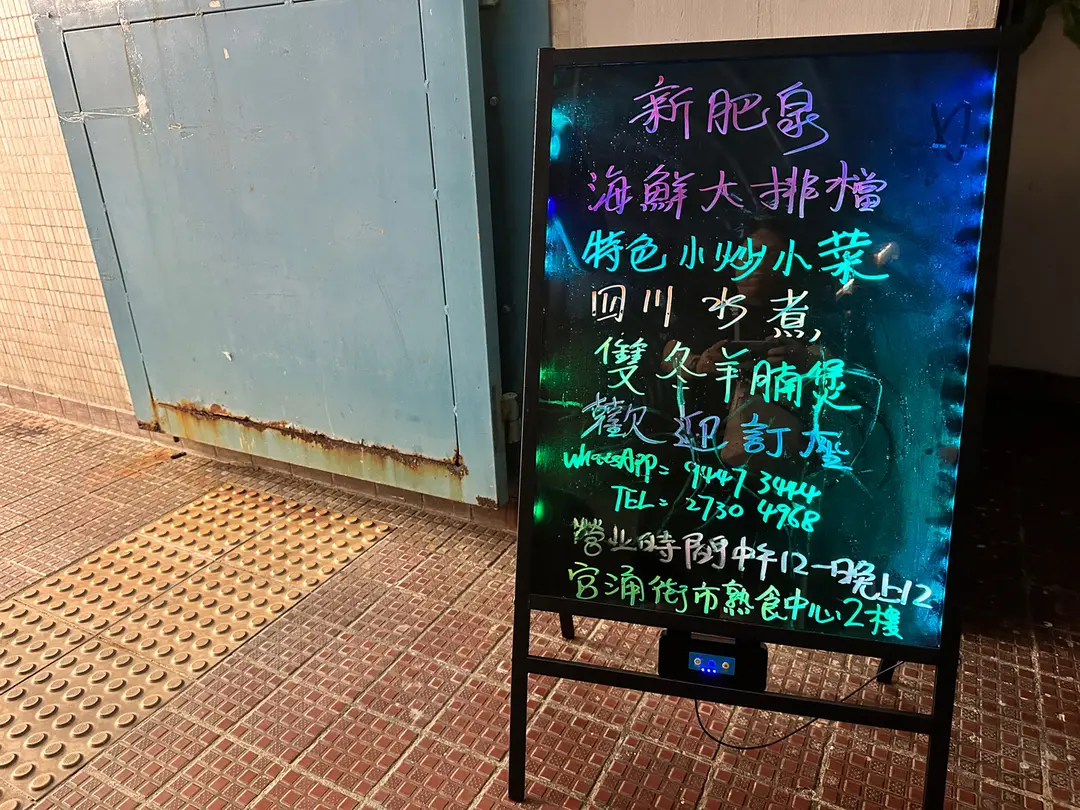 新肥泉
海鮮大排檔
特色小炒小菜
四川水煮
雙冬羊腩煲
歡迎訂座
WhatsAPP= 9447 3444
TEL= 2730 4968
營业時間中午12一晚上12
官涌街市熟食中心2樓